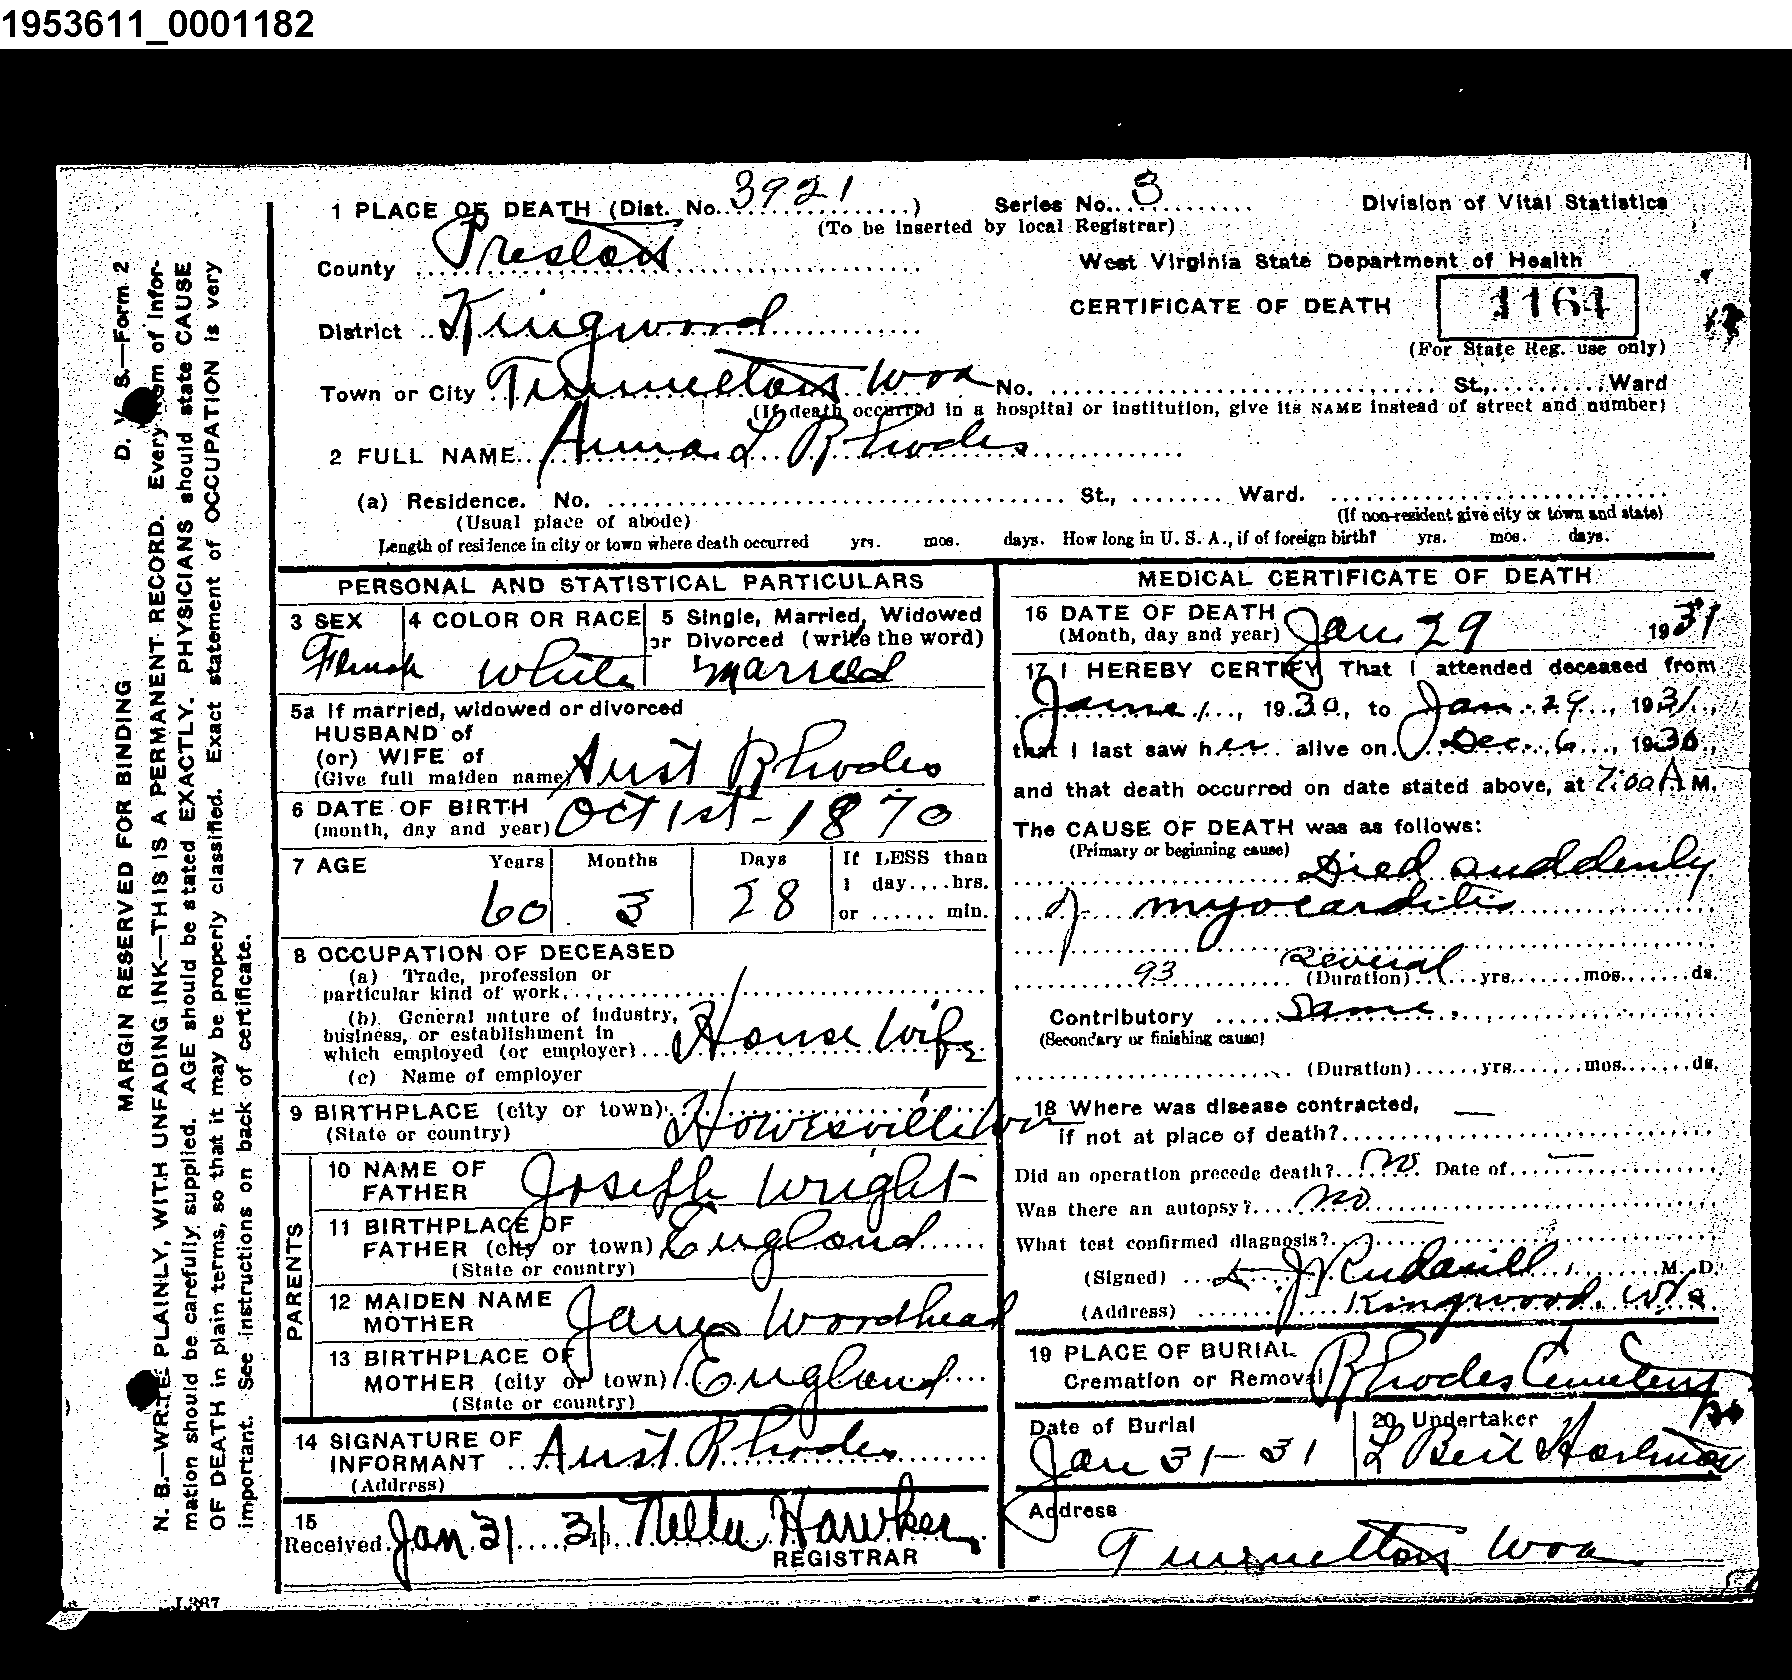 1953611_0001182
1 PLACE OF DEATH (Dist. No. 3921) Series No. 3 Division of Vital Statistics
(To be inserted by local Registrar)
County Preston West Virginia State Department of Health
CERTIFICATE OF DEATH 1164
District Kingwood (For State Reg. use only)
Town or City Tunnelton Wva No. St., Ward
(If death occurred in a hospital or institution, give its NAME instead of street and number)
2 FULL NAME Anna L Rhodes
(a) Residence. No. St., Ward.
(Usual place of abode) (If non-resident give city or town and state)
Length of residence in city or town where death occurred yrs. mos. days. How long in U. S. A., if of foreign birth? yrs. mos. days.
PERSONAL AND STATISTICAL PARTICULARS
3 SEX 4 COLOR OR RACE 5 Single, Married, Widowed
or Divorced (write the word)
Female White married
5a If married, widowed or divorced
HUSBAND of
(or) WIFE of
(Give full maiden name) Aust Rhodes
6 DATE OF BIRTH
(month, day and year) Oct 1st - 1870
7 AGE Years Months Days If LESS than
1 day....hrs.
60 3 28 or ...... min.
8 OCCUPATION OF DECEASED
(a) Trade, profession or
particular kind of work
(b) General nature of industry,
business, or establishment in
which employed (or employer) House Wife
(c) Name of employer
9 BIRTHPLACE (city or town) Howesville Wva
(State or country)
PARENTS
10 NAME OF
FATHER Joseph Wright
11 BIRTHPLACE OF
FATHER (city or town) England
(State or country)
12 MAIDEN NAME
MOTHER James Woodhead
13 BIRTHPLACE OF
MOTHER (city or town) England
(State or country)
14 SIGNATURE OF
INFORMANT Aust Rhodes
(Address)
15
Received Jan 31 31 Nelle Hawker
REGISTRAR
MEDICAL CERTIFICATE OF DEATH
16 DATE OF DEATH
(Month, day and year) Jan 29 1931
17 I HEREBY CERTIFY That I attended deceased from
1930, to Jan 29, 1931,
that I last saw her alive on Dec 6, 1930,
and that death occurred on date stated above, at 7:00 A M.
The CAUSE OF DEATH was as follows:
(Primary or beginning cause) Died suddenly
of myocarditis
93 several (Duration) yrs. mos. ds.
Contributory Same
(Secondary or finishing cause)
(Duration) yrs. mos. ds.
18 Where was disease contracted,
if not at place of death?
Did an operation precede death? No. Date of
Was there an autopsy? no
What test confirmed diagnosis?
(Signed) J Rudasill M. D.
(Address) Kingwood. WVa
19 PLACE OF BURIAL
Cremation or Removal Rhodes Cemetery
Date of Burial 20 Undertaker
Jan 31-31 L Bert Hartman
Address
Tunnelton Wva
MARGIN RESERVED FOR BINDING D. V. S.—Form 2
N. B.—WRITE PLAINLY, WITH UNFADING INK—THIS IS A PERMANENT RECORD. Every item of infor-
mation should be carefully supplied. AGE should be stated EXACTLY. PHYSICIANS should state CAUSE
OF DEATH in plain terms, so that it may be properly classified. Exact statement of OCCUPATION is very
important. See instructions on back of certificate.